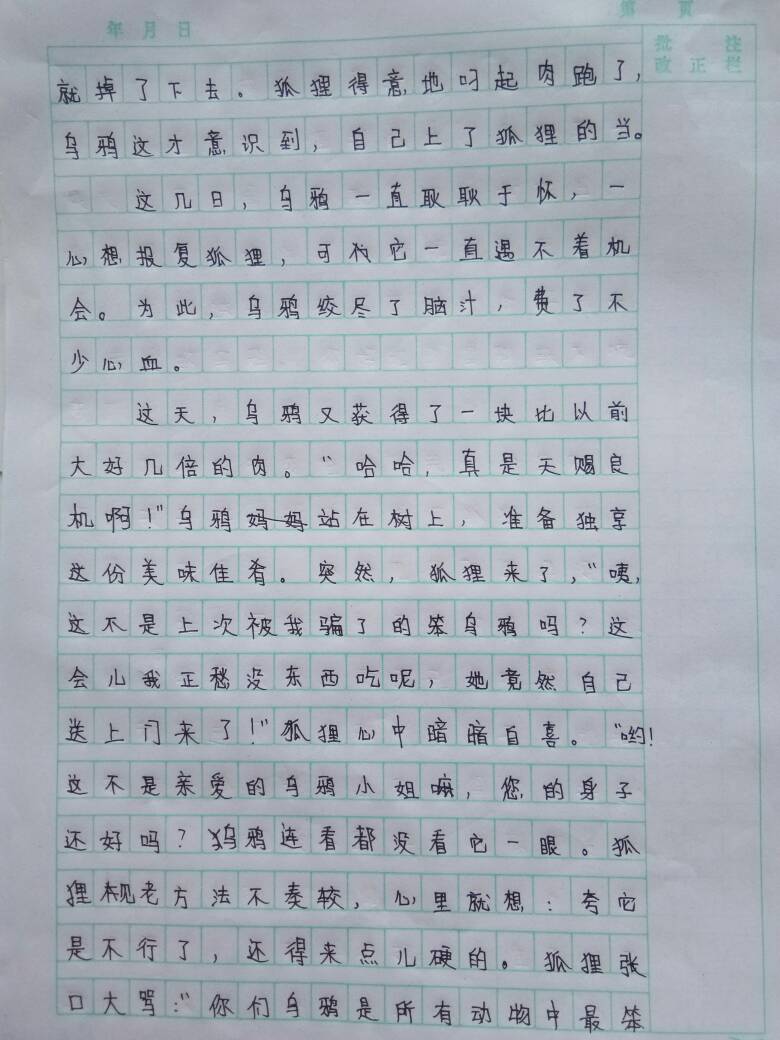 年 月 日
第 页
批 注
改 正 栏
就掉了下去。狐狸得意地叼起肉跑了,
乌鸦这才意识到,自己上了狐狸的当。
这几日,乌鸦一直耿耿于怀,一
心想报复狐狸,可找它一直遇不着机
会。为此,乌鸦绞尽了脑汁,费了不
少心血。
这天,乌鸦又获得了一块比以前
大好几倍的肉。“哈哈,真是天赐良
机啊!”乌鸦妈妈站在树上,准备独享
这份美味佳肴。突然,狐狸来了,“咦,
这不是上次被我骗了的笨乌鸦吗?这
会儿我正愁没东西吃呢,她竟然自己
送上门来了!”狐狸心中暗暗自喜。“哟!
这不是亲爱的乌鸦小姐嘛,您的身子
还好吗?乌鸦连看都没看它一眼。狐
狸枧老方法不奏较,心里就想:夸它
是不行了,还得来点儿硬的。狐狸张
口大骂:“你们乌鸦是所有动物中最笨